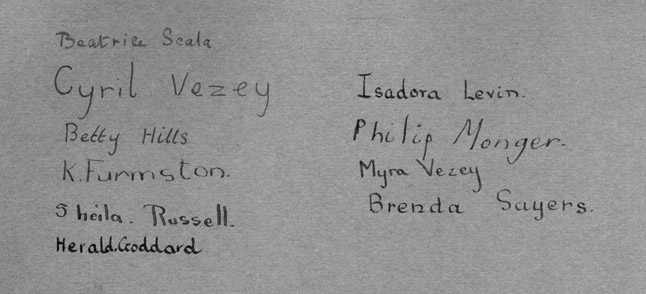 Beatrice Scala
Cyril Vezey
Betty Hills
K. Furmston.
Sheila. Russell.
Herald. Goddard
Isadora Levin.
Philip Monger.
Myra Vezey
Brenda Sayers.